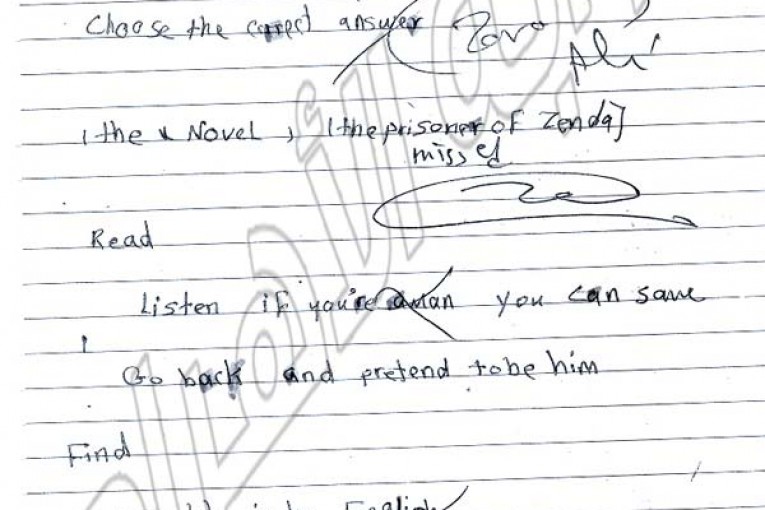 Choose the correct answer Zero
Ali
1 the x Novel , [the prisoner of Zenda]
missed
Read
Listen if you're a man you can save
Go back and pretend to be him
Find
English